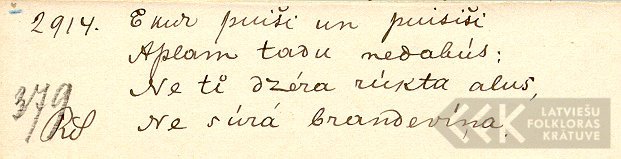 2914. Ekur puiši un puisiši
Aplam tadu nedabús;
Ne tí dzéra rúkta alus,
379
Ne súrá brandevína.
LATVIEŠU
FOLKLORAS
KRĀTUVE